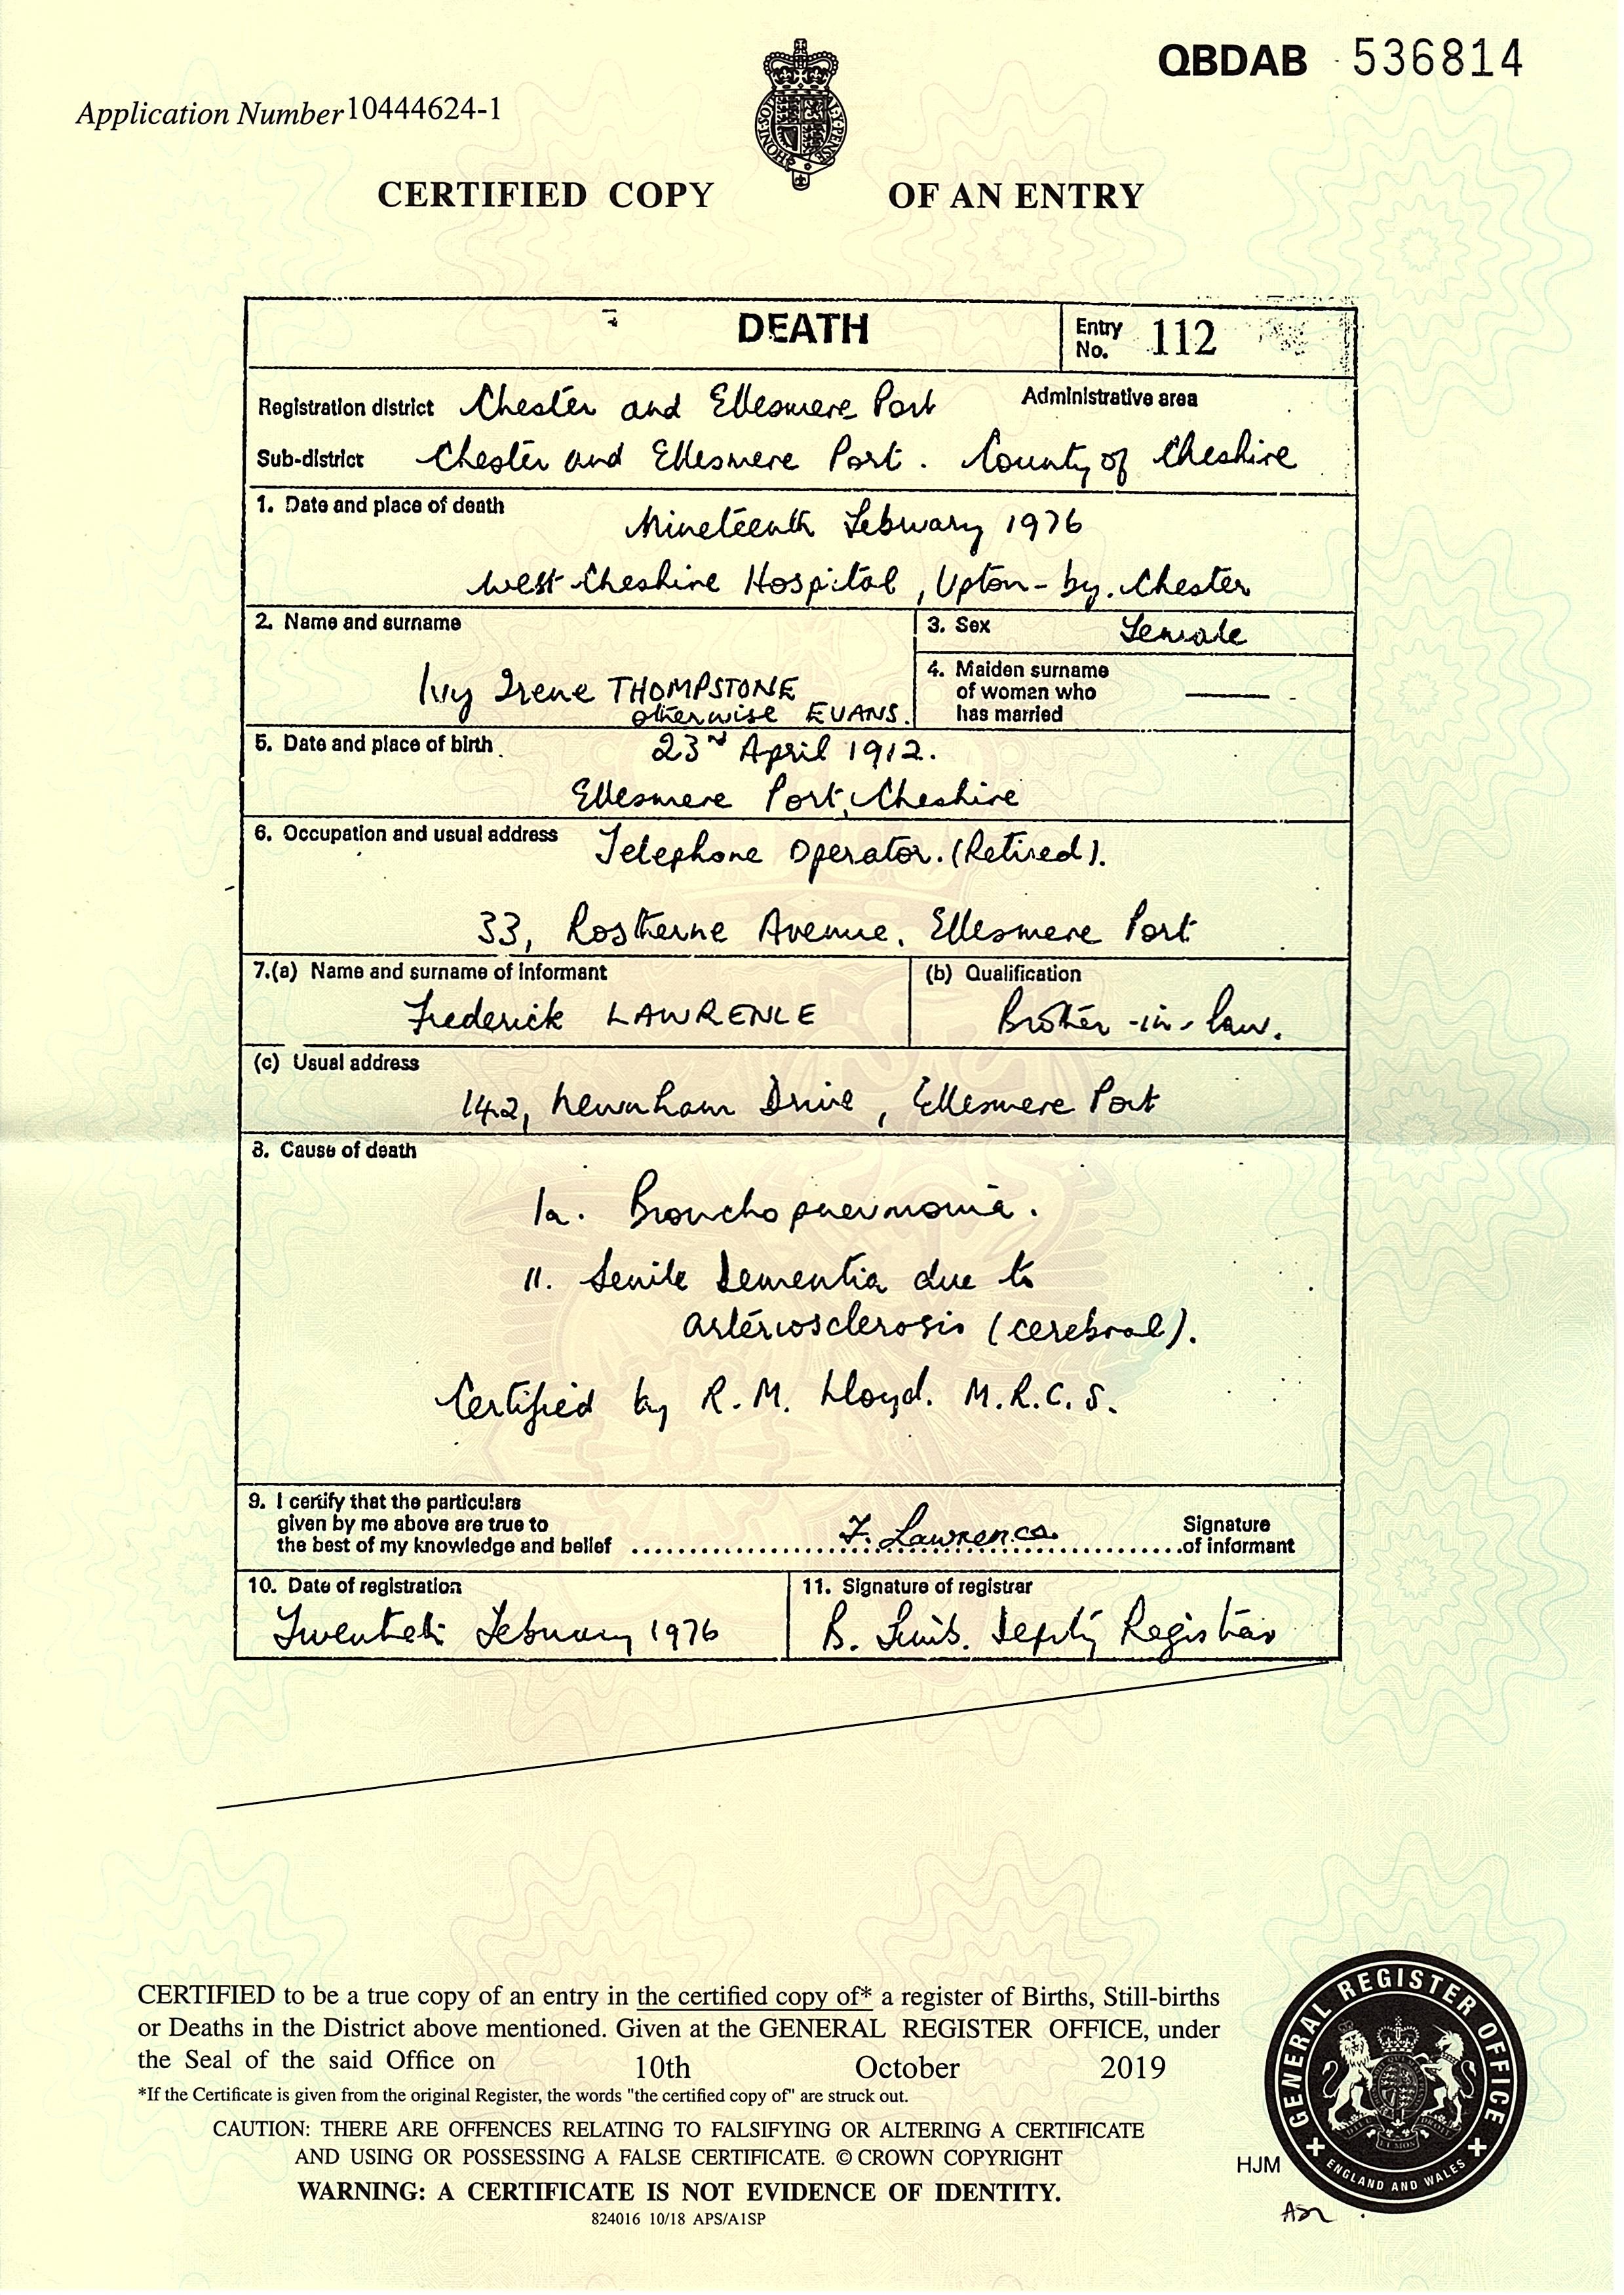 QBDAB 536814
Application Number 10444624-1
CERTIFIED COPY OF AN ENTRY
DEATH
Entry No. 112
Registration district Chester and Ellesmere Port
Administrative area
Sub-district Chester and Ellesmere Port. County of Cheshire
1. Date and place of death
Nineteenth February 1976
West Cheshire Hospital, Upton-by-Chester
2. Name and surname
Ivy Irene THOMPSTONE
otherwise EVANS.
3. Sex Female
4. Maiden surname
of woman who
has married
5. Date and place of birth
23rd April 1912.
Ellesmere Port, Cheshire
6. Occupation and usual address
Telephone Operator. (Retired).
33, Rostherne Avenue, Ellesmere Port
7.(a) Name and surname of informant
Frederick LAWRENCE
(b) Qualification
Brother-in-law.
(c) Usual address
142, Newnham Drive, Ellesmere Port
8. Cause of death
1a. Bronchopneumonia.
11. Senile Dementia due to
arteriosclerosis (cerebral).
Certified by R. M. Lloyd. M.R.C.S.
9. I certify that the particulars
given by me above are true to
the best of my knowledge and belief F. Lawrence. Signature
of informant
10. Date of registration
Twentieth February 1976
11. Signature of registrar
B. Deputy Registrar
CERTIFIED to be a true copy of an entry in the certified copy of* a register of Births, Still-births
or Deaths in the District above mentioned. Given at the GENERAL REGISTER OFFICE, under
the Seal of the said Office on 10th October 2019
*If the Certificate is given from the original Register, the words "the certified copy of" are struck out.
CAUTION: THERE ARE OFFENCES RELATING TO FALSIFYING OR ALTERING A CERTIFICATE
AND USING OR POSSESSING A FALSE CERTIFICATE. © CROWN COPYRIGHT
WARNING: A CERTIFICATE IS NOT EVIDENCE OF IDENTITY.
824016 10/18 APS/A1SP
HJM
GENERAL REGISTER OFFICE
ENGLAND AND WALES